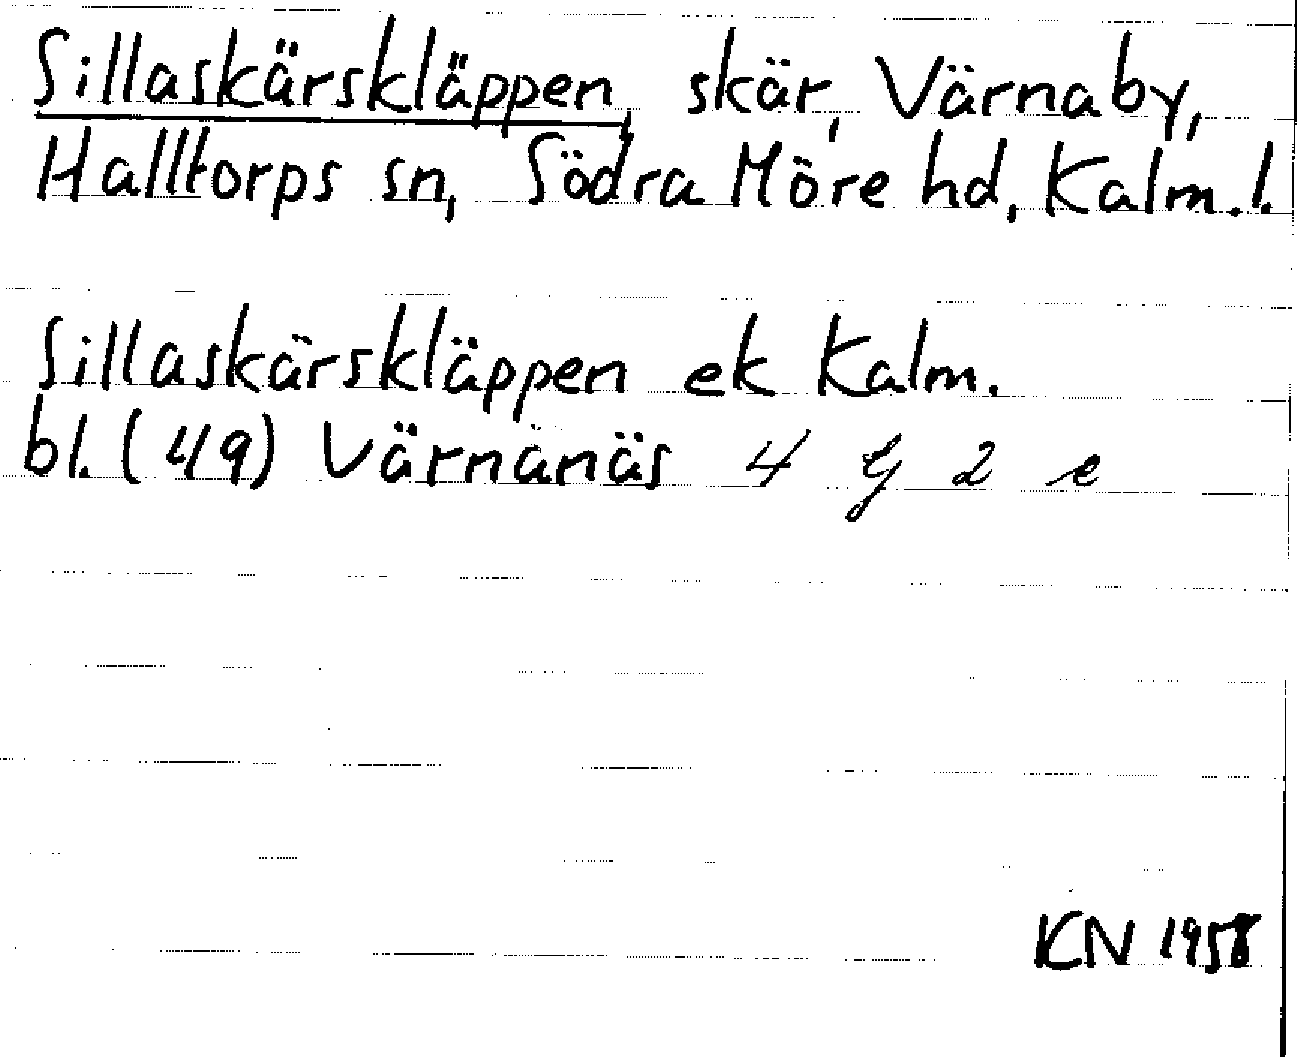 Sillaskärskläppen, skär, Värnaby,
Halltorps sn, Södra Möre hd, Kalm. l.
Sillaskärskläppen ek Kalm.
bl. (49) Värnanäs 4 G 2 e
KN 1958